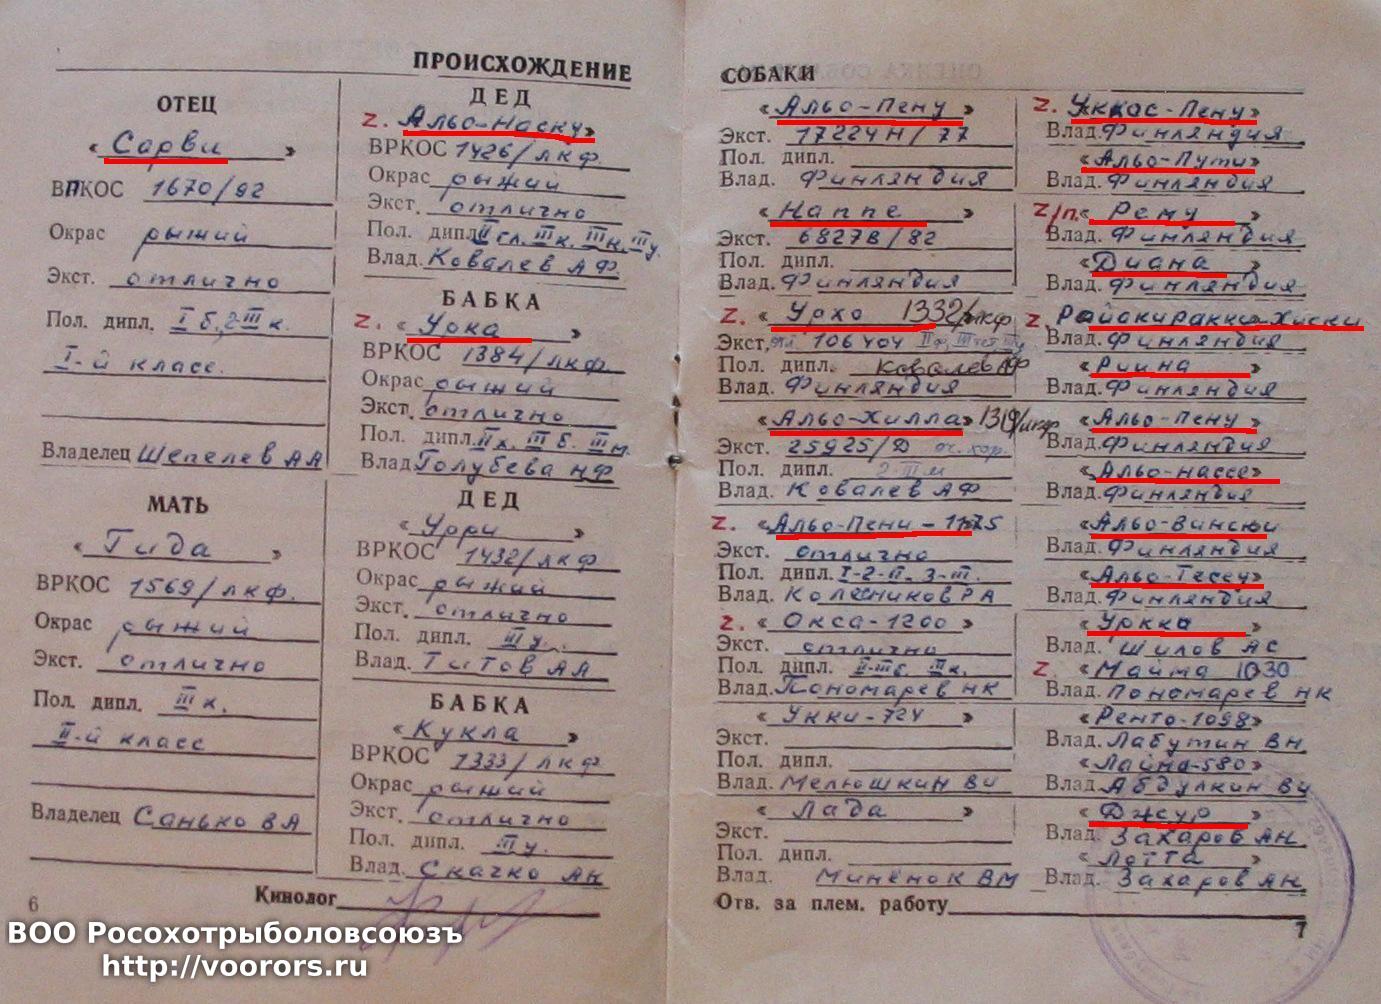 ПРОИСХОЖДЕНИЕ
ОТЕЦ
« Сарви »
ВПКОС 1670/92
Окрас рыжий
Экст. отлично
Пол. дипл. I б, 2 III к.
I-й класс.
Владелец Шепелев АА
МАТЬ
« Гида »
ВРКОС 1569/лкф.
Окрас рыжий
Экст. отлично
Пол. дипл. III к.
II-й класс
Владелец Санько ВА
ДЕД
z. «Альо-Наску»
ВРКОС 1426/лкф.
Окрас рыжий
Экст. отлично
Пол. дипл. II гл. III к. III н. III у.
Влад. Ковалев АФ.
БАБКА
z. « Урка »
ВРКОС 1384/лкф.
Окрас рыжий
Экст. отлично
Пол. дипл. II х. III б. III м.
Влад. Голубева НФ
ДЕД
« Урри »
ВРКОС 1432/лкф.
Окрас рыжий
Экст. отлично
Пол. дипл. III у.
Влад. Титов АА
БАБКА
« Кукла »
ВРКОС 1333/лкф
Окрас рыжий
Экст. отлично
Пол. дипл. III у.
Влад. Скачко АН
Кинолог
6
СОБАКИ
« Альо-Пену »
Экст. 17224Н/77
Пол. дипл.
Влад. Финляндия
« Наппе »
Экст. 6827В/82
Пол. дипл.
Влад. Финляндия
z. « Урхо 1332/лкф
Экст. отл. 106404
Пол. дипл. Ковалев АФ
Влад. Финляндия
« Альо-Хилла» 1319/лкф
Экст. 25925/Д оч. хор.
Пол. дипл. 2-III м
Влад. Ковалев АФ
z. « Альо-Пени-1175
Экст. отлично
Пол. дипл. I-2-II. 3-III.
Влад. Колесников РА
z. « Окса-1200 »
Экст. отлично
Пол. дипл. II-III б. III к.
Влад. Пономарев НК
« Укки-724 »
Экст.
Пол. дипл.
Влад. Мелюшкин ВИ
« Лада »
Экст.
Пол. дипл.
Влад. Миненок ВМ
Отв. за плем. работу
z. « Уккос-Пену»
Влад. Финляндия
«Альо-Пути»
Влад. Финляндия
z/п. « Рему »
Влад. Финляндия
« Диана »
Влад. Финляндия
z. Райакиракки-Хиски
Влад. Финляндия
« Риина »
Влад. Финляндия
« Альо-Пену »
Влад. Финляндия
«Альо-Нассе»
Влад. Финляндия
«Альо-Вински
Влад. Финляндия
«Альо-Тесеу»
Влад. Финляндия
« Уркка »
Влад. Шилов АС
z. « Майма 1030
Влад. Пономарев НК
«Ренто-1098»
Влад. Лабутин ВН
«Лайна-580»
Влад. Абдулкин ВИ
« Джур »
Влад. Захаров АН
« Лотта »
Влад. Захаров АН
7
ВОО Росохотрыболовсоюзъ
http://voorors.ru